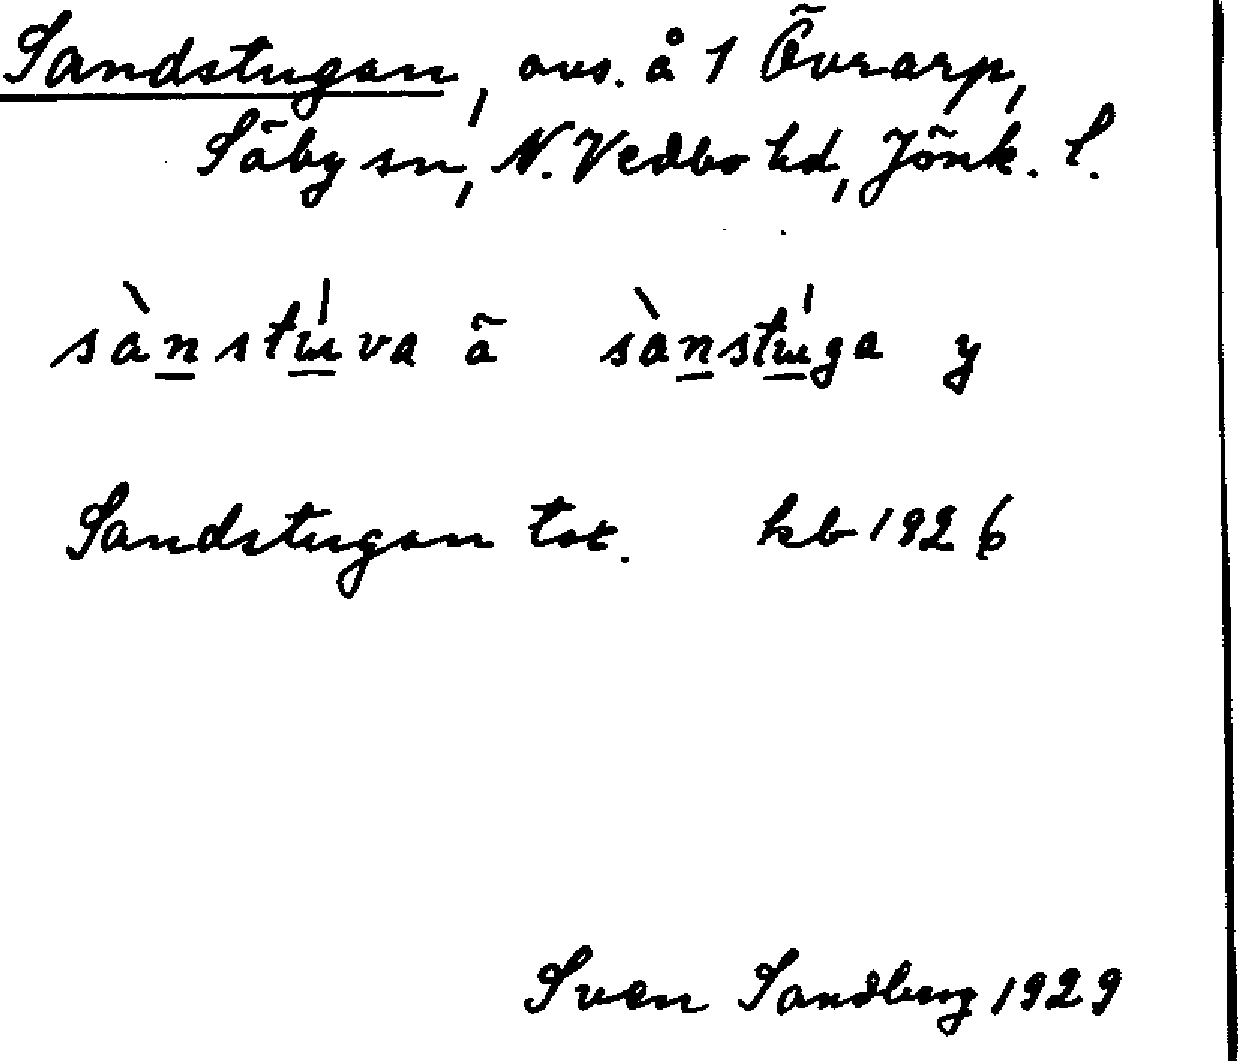 Sandstugan, avs. å 1 Övrarp,
Säby sn, N. Vedbo hd, Jönk. l.
sànstúva ä sànstúga y
Sandstugan tot. kb 1926
Sven Sandberg 1929